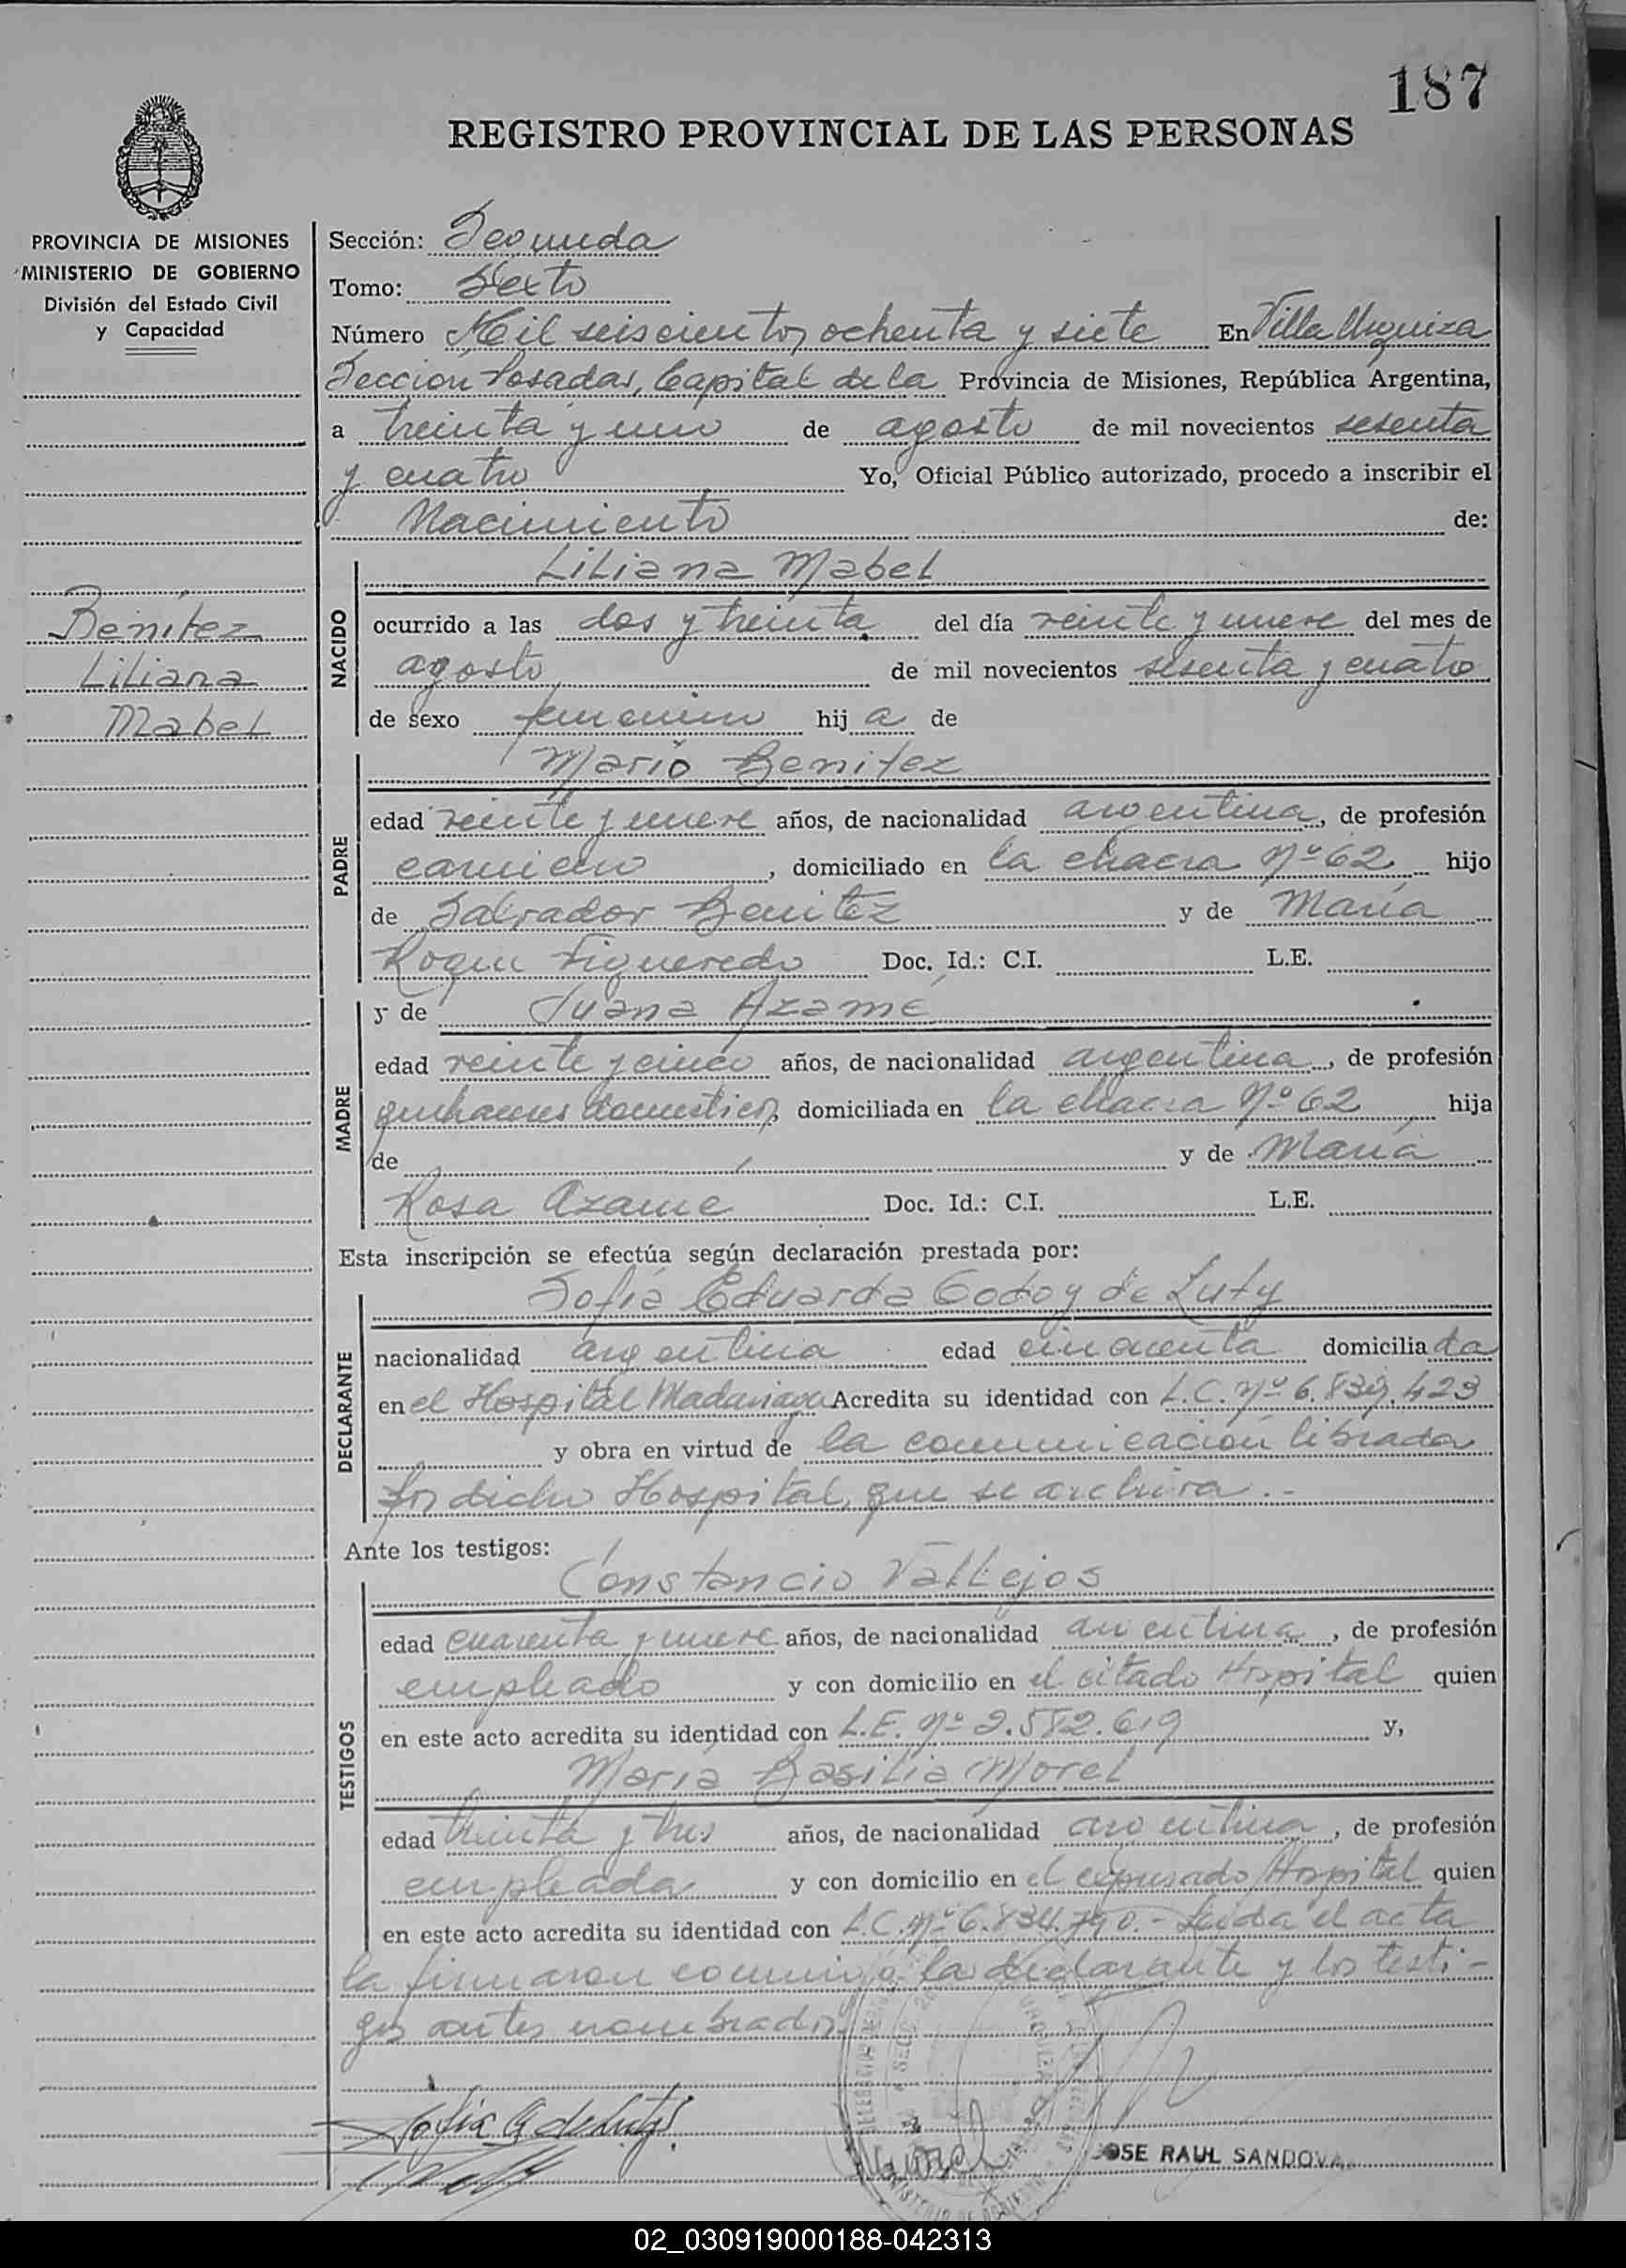 187
REGISTRO PROVINCIAL DE LAS PERSONAS
PROVINCIA DE MISIONES
MINISTERIO DE GOBIERNO
División del Estado Civil
y Capacidad
Benítez
Liliana
Mabel
Sección: Segunda
Tomo: Sexto
Número Mil seiscientos ochenta y siete En Villa Urquiza
Seccion Posadas, Capital de la Provincia de Misiones, República Argentina,
a treinta y uno de agosto de mil novecientos sesenta
y cuatro Yo, Oficial Público autorizado, procedo a inscribir el
Nacimiento de:
Liliana Mabel
NACIDO
ocurrido a las dos y treinta del día veinte y nueve del mes de
agosto de mil novecientos sesenta y cuatro
de sexo femenino hij a de
Mario Benitez
PADRE
edad veinte y nueve años, de nacionalidad argentina, de profesión
carnicero, domiciliado en la chacra Nº 62 hijo
de Salvador Benitez y de María
Roque Figueredo Doc. Id.: C.I. L.E.
y de Juana Azamé
MADRE
edad veinte y cinco años, de nacionalidad argentina, de profesión
quehaceres domesticos, domiciliada en la chacra Nº 62 hija
de y de María
Rosa Azamé Doc. Id.: C.I. L.E.
Esta inscripción se efectúa según declaración prestada por:
Sofía Eduarda Godoy de Luty
DECLARANTE
nacionalidad argentina edad cincuenta domicilia da
en el Hospital Madariaga Acredita su identidad con L.C. Nº 6.839.423
y obra en virtud de la comunicación librada
por dicho Hospital, que se archiva.-
Ante los testigos:
Constancio Vallejos
TESTIGOS
edad cuarenta y nueve años, de nacionalidad argentina, de profesión
empleado y con domicilio en el citado Hospital quien
en este acto acredita su identidad con L.E. Nº 2.582.619 y,
María Basilia Morel
edad treinta y tres años, de nacionalidad argentina, de profesión
empleada y con domicilio en el expresado Hospital quien
en este acto acredita su identidad con L.C. Nº 6.834.790.- Leída el acta
la firmaron conmigo la declarante y los testi-
gos antes nombrados
Sofía G de Luty
JOSE RAUL SANDOVA
02_030919000188-042313